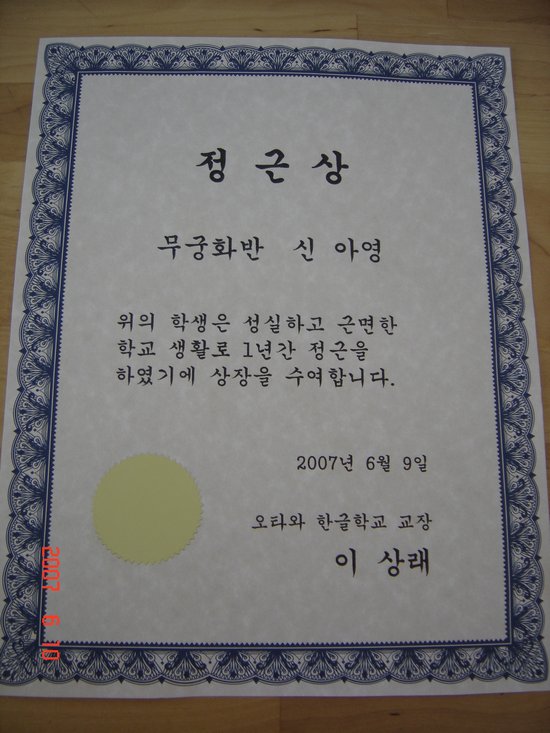 정 근 상
무궁화반 신 아영
위의 학생은 성실하고 근면한
학교 생활로 1년간 정근을
하였기에 상장을 수여합니다.
2007년 6월 9일
오타와 한글학교 교장
이 상래
2007 6 10